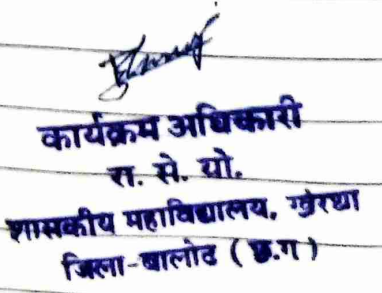 कार्यक्रम अधिकारी
रा. से. यो.
शासकीय महाविद्यालय, खेरथा
जिला-बालोद (छ.ग)